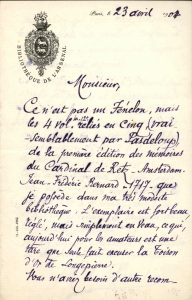 Paris, le 23 avril 190
BIBLIOTHÈQUE DE L'ARSENAL
Monsieur,
Ce n'est pas un Fénelon, mais
les 4 vol. reliés en cinq (vrai
semblablement par Pasdeloup)
de la première édition des mémoires
du Cardinal de Retz - Amsterdam.
Jean-Frédéric Bernard 1717. que
je possède dans ma très modeste
bibliothèque. L'exemplaire est fort beau
réglé, mais simplement en veau, ce qui,
aujourd'hui pour les amateurs est une
titre que seule fait excuser la Toison
d'Or de Longepierre.
Vous n'avez besoin d'autre recom-